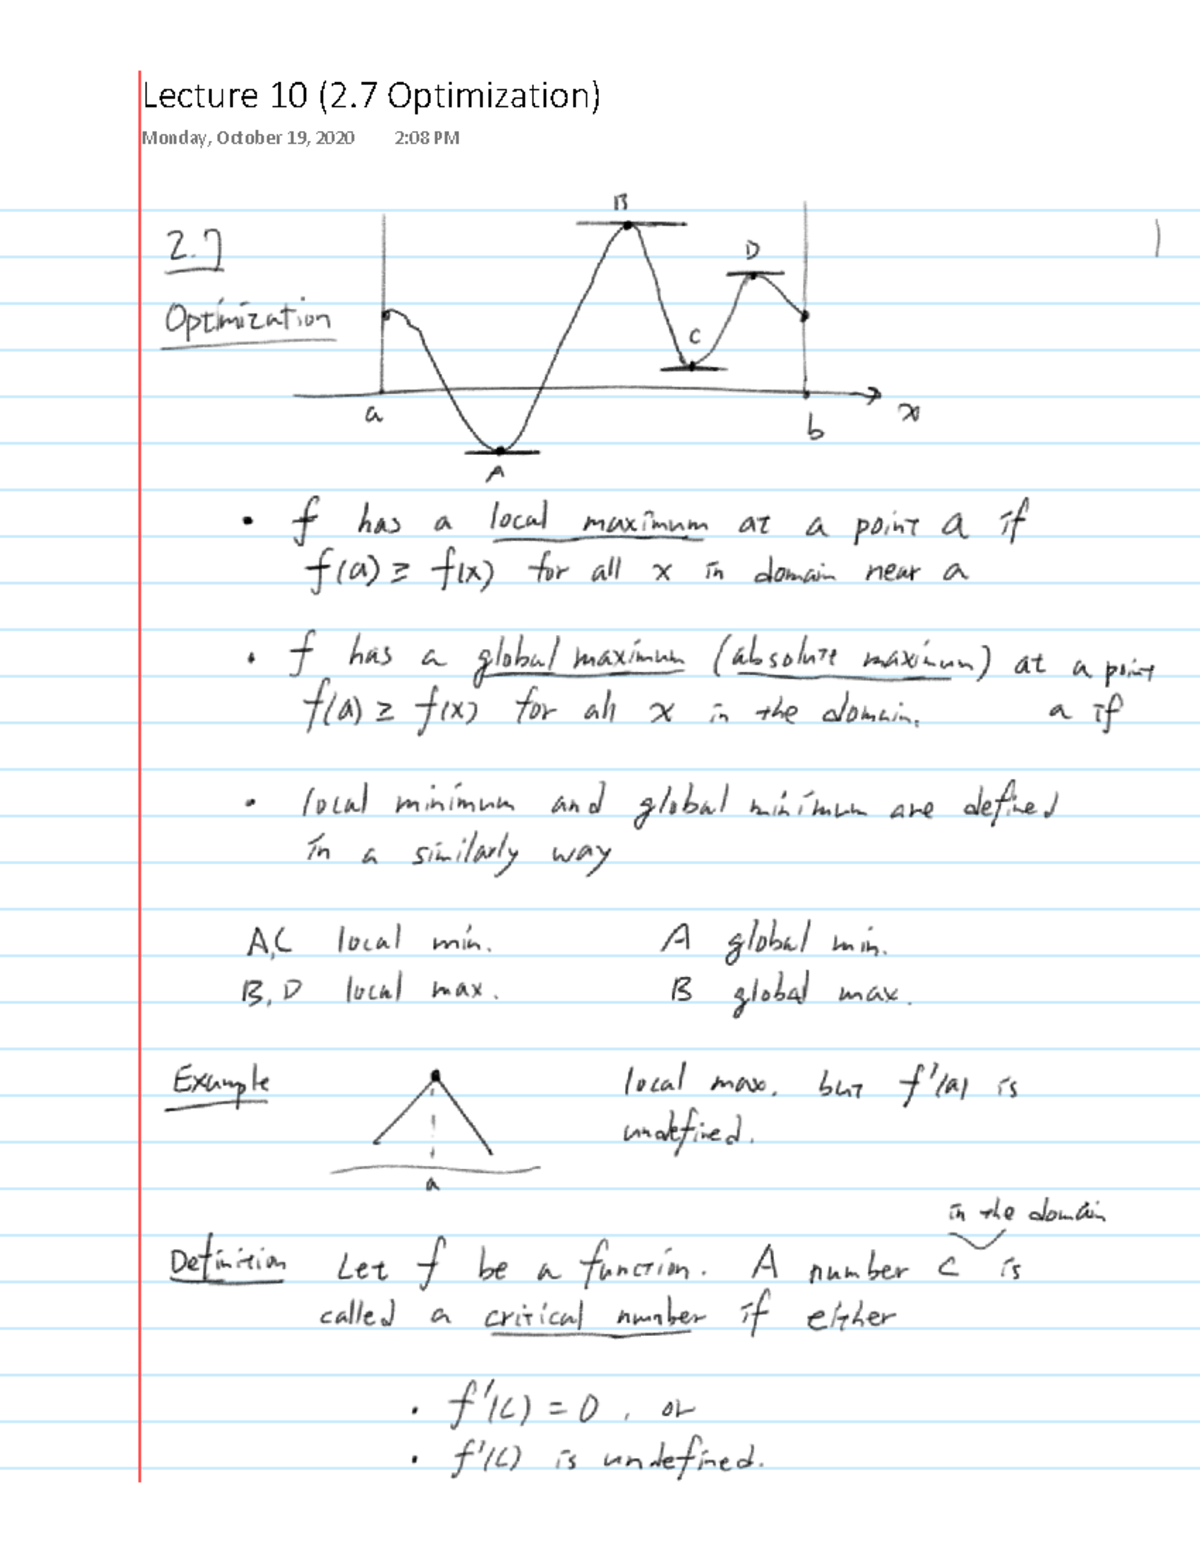 Lecture 10 (2.7 Optimization)
Monday, October 19, 2020 2:08 PM
1
2.7
Optimization
B
D
C
a
b
x
A
• f has a local maximum at a point a if
f(a) ≥ f(x) for all x in domain near a
• f has a global maximum (absolute maximum) at a point
f(a) ≥ f(x) for all x in the domain. a if
• local minimum and global minimum are defined
in a similarly way
A,C local min. A global min.
B, D local max. B global max.
Example local max. but f'(a) is
undefined.
a
in the domain
Definition Let f be a function. A number c is
called a critical number if either
• f'(c) = 0, or
• f'(c) is undefined.